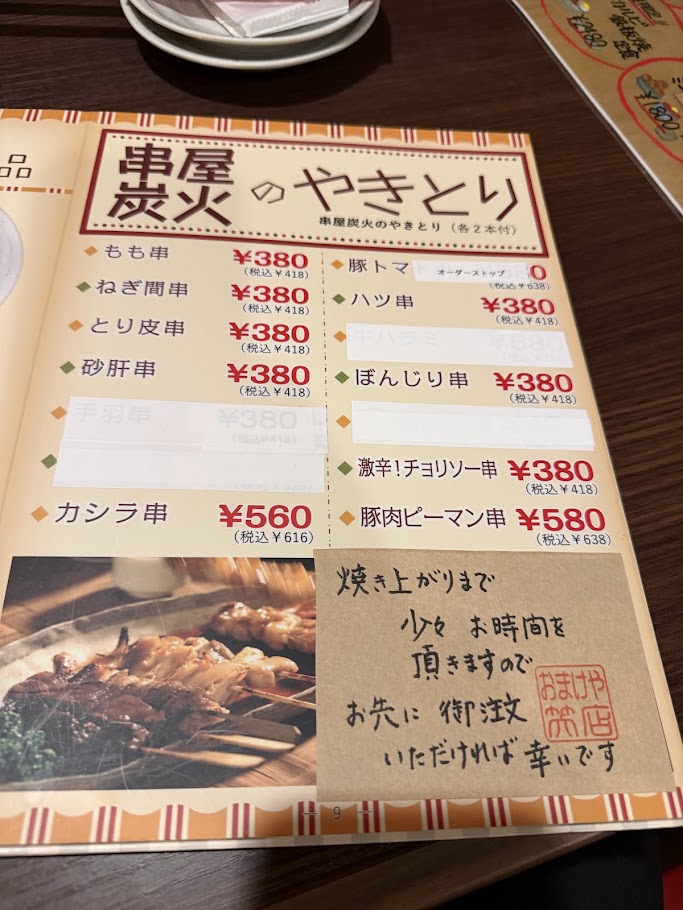 品
串屋
炭火
のやきとり
串屋炭火のやきとり(各2本付)
もも串 ¥380
(税込¥418)
ねぎ間串 ¥380
(税込¥418)
とり皮串 ¥380
(税込¥418)
砂肝串 ¥380
(税込¥418)
手羽串 ¥380
(税込¥418)
カシラ串 ¥560
(税込¥616)
豚トマ オーダーストップ 0
(税込¥638)
ハツ串 ¥380
(税込¥418)
牛ハラミ ¥680
ぼんじり串 ¥380
(税込¥418)
激辛!チョリソー串 ¥380
(税込¥418)
豚肉ピーマン串 ¥580
(税込¥638)
焼き上がりまで
少々 お時間を
頂きますので
お先に 御注文
いただければ 幸いです
おまけや
笑店
9
¥2180
カルビ
鉄板焼
定食
¥1800